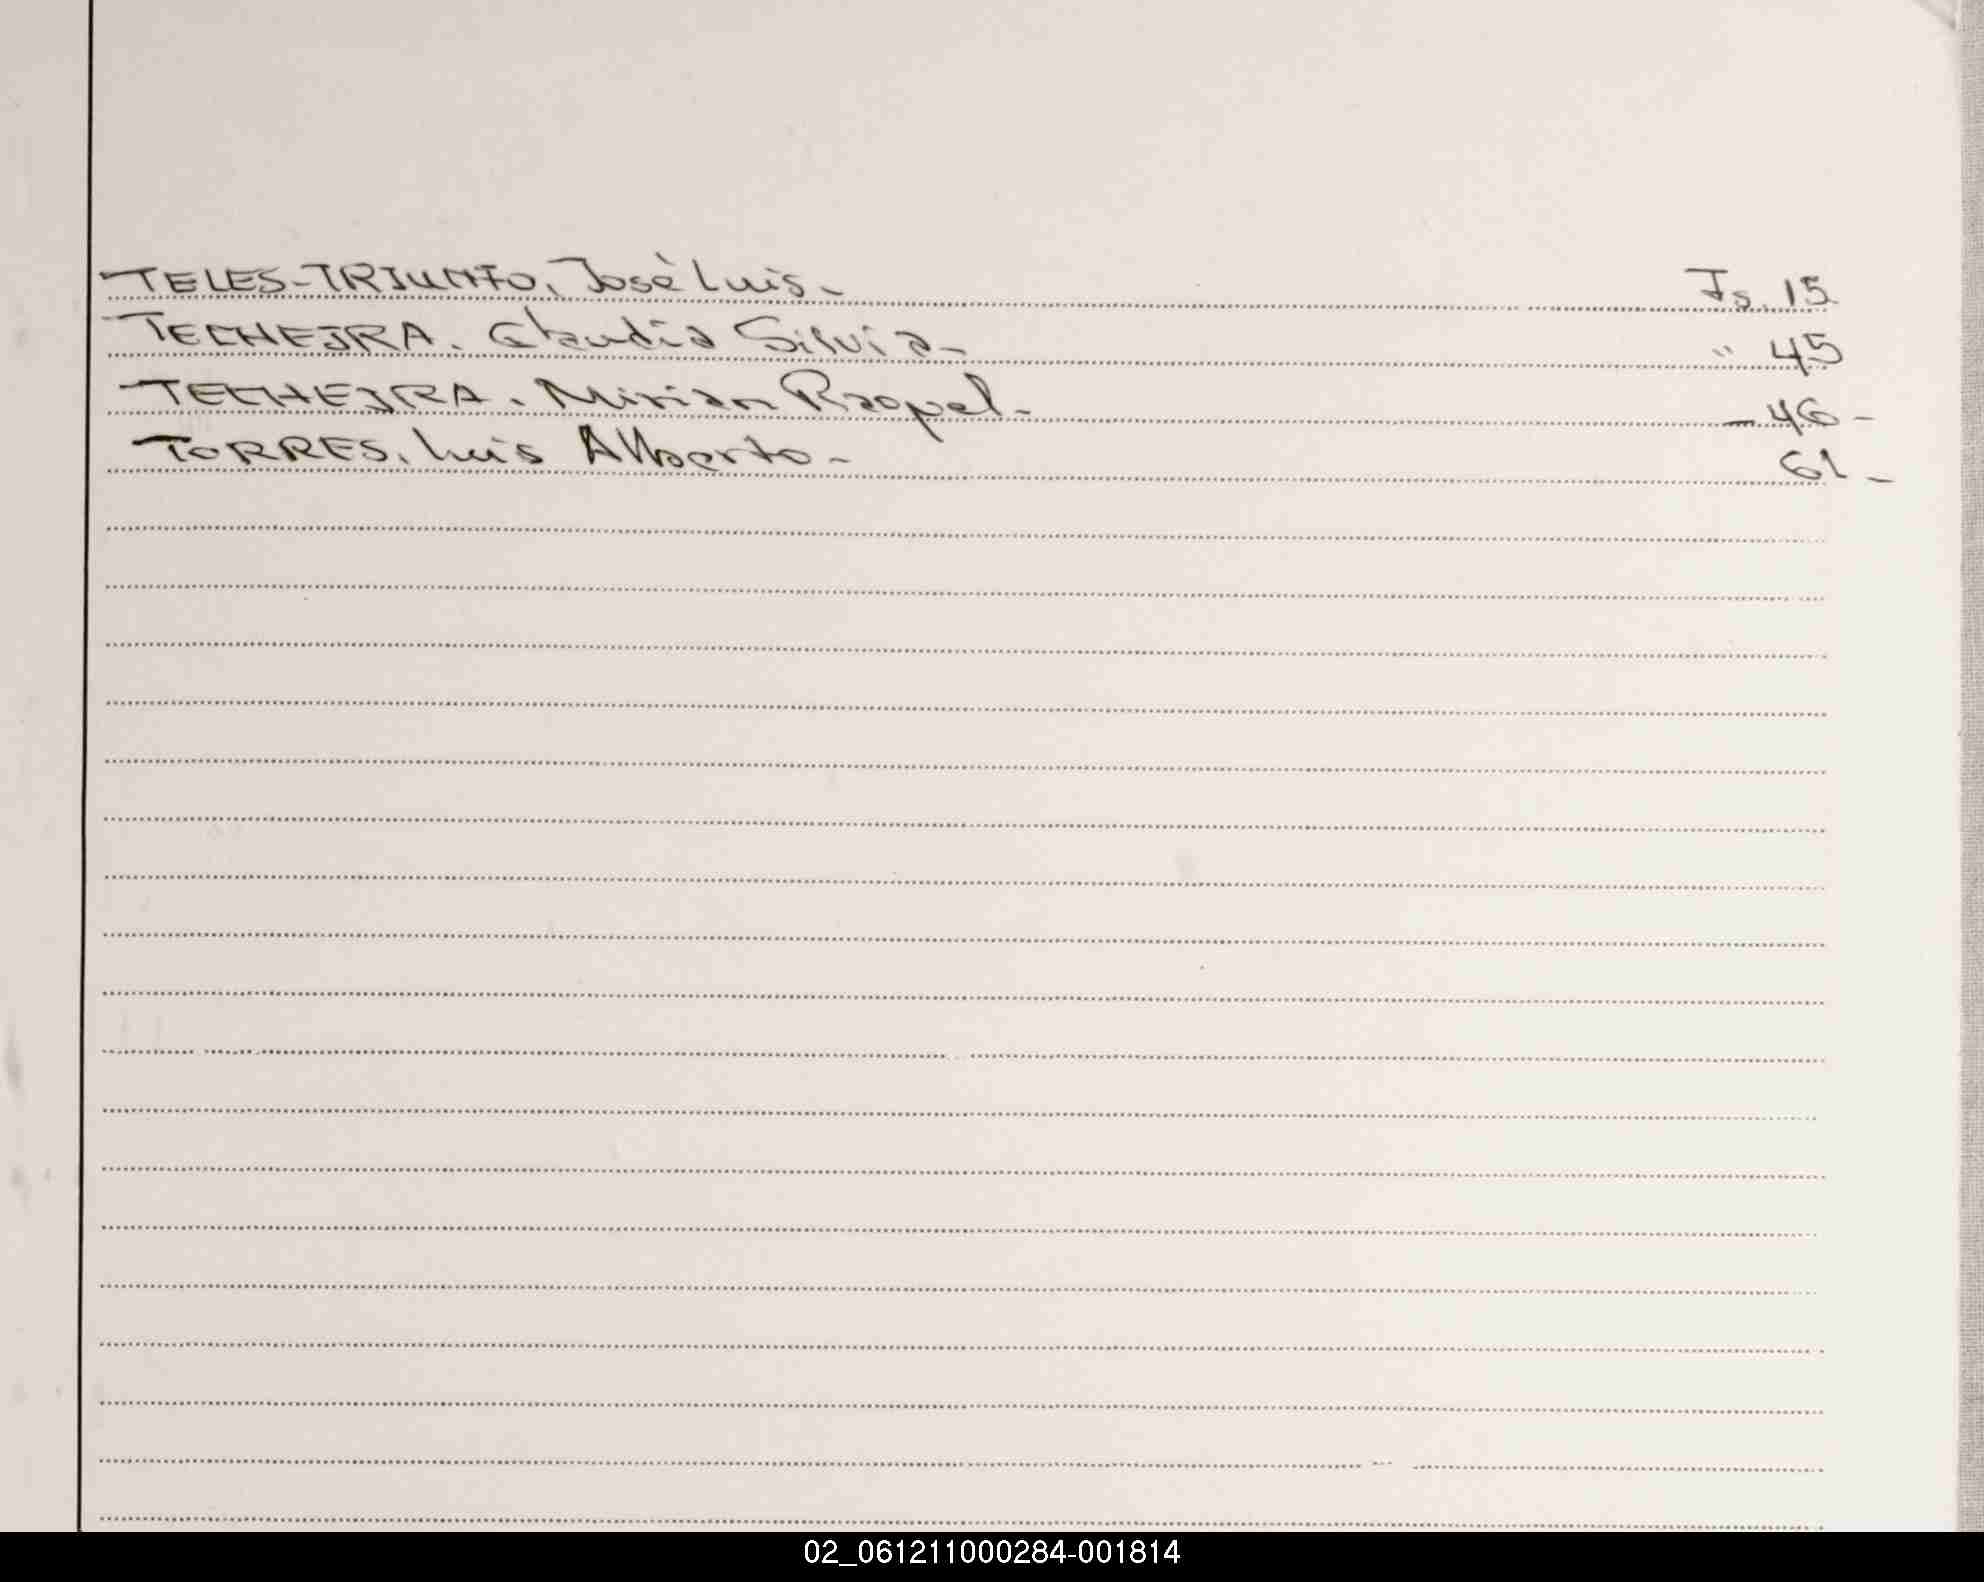 TELES-TRIUNFO, José Luis. Fs. 15
TECHEJRA. Claudia Silvia- " 45
TECHEJRA. Mirian Raquel- - 46-
TORRES, Luis Alberto- 61-
02_061211000284-001814